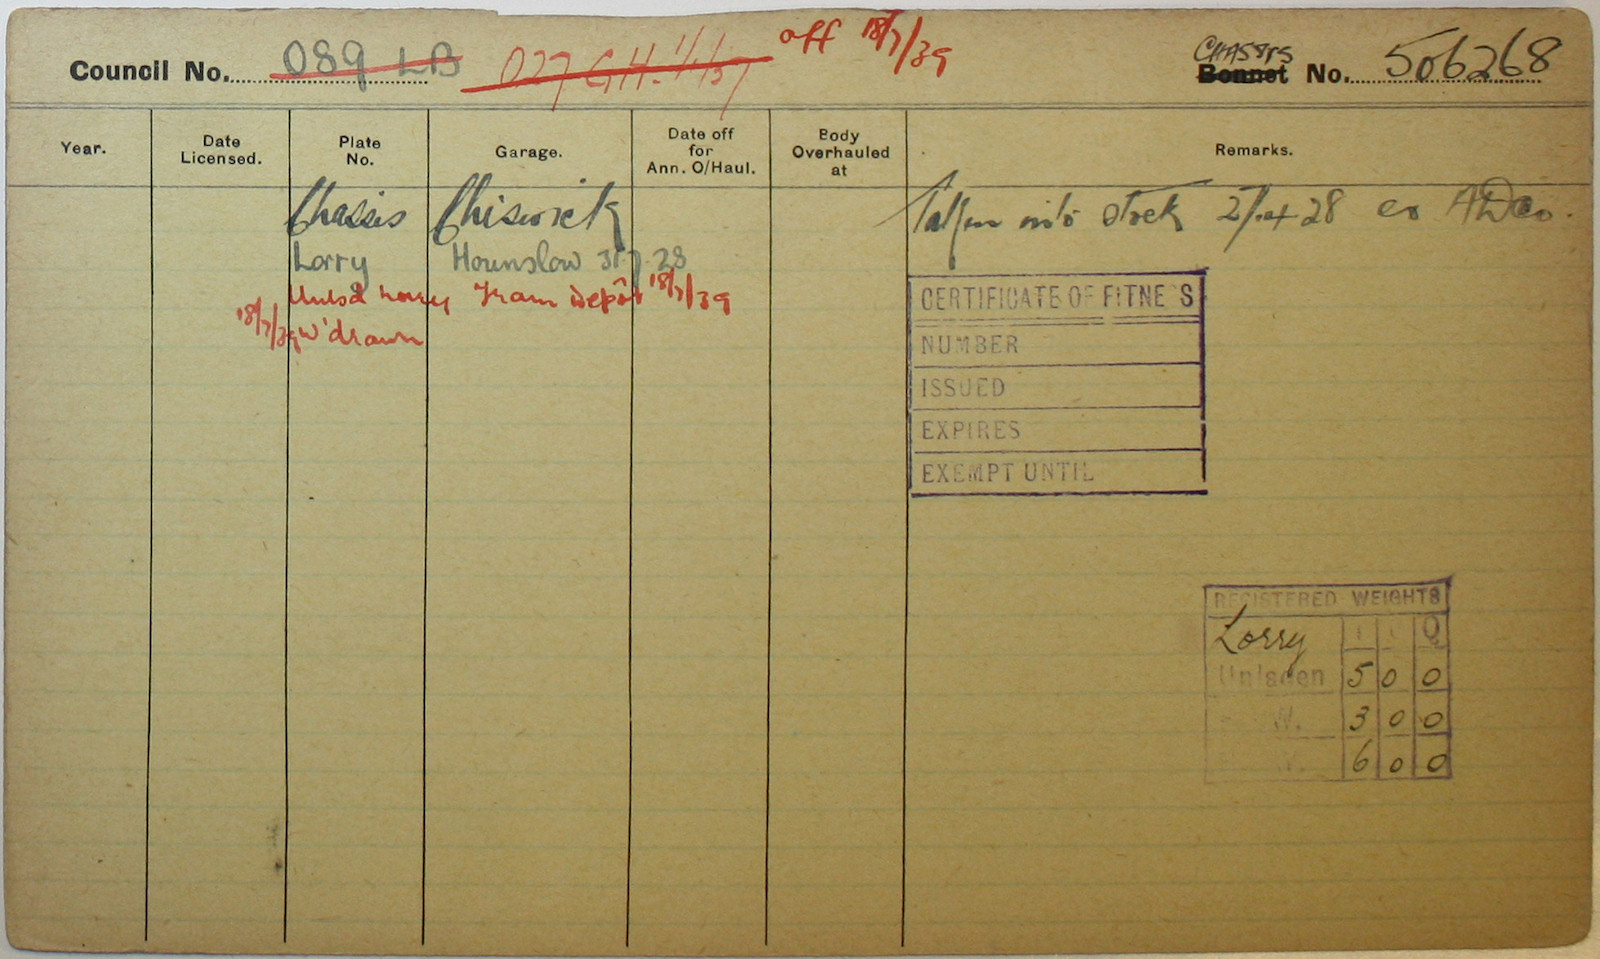 Council No. 089 LB 027 GH. 1/1/37 off 18/7/39
CHASSIS
Bonnet No. 506268
Year. Date Licensed. Plate No. Garage. Date off for Ann. O/Haul. Body Overhauled at Remarks.
Chassis Chiswick Taken into stock 27.4.28 ex ADCo.
Lorry Hounslow 31.7.28
Lorry Tram Depôt 18/7/39
18/7/39 W'drawn
CERTIFICATE OF FITNE S
NUMBER
ISSUED
EXPIRES
EXEMPT UNTIL
REGISTERED WEIGHTS
Lorry Q
Unladen 5 0 0
W. 3 0 0
6 0 0